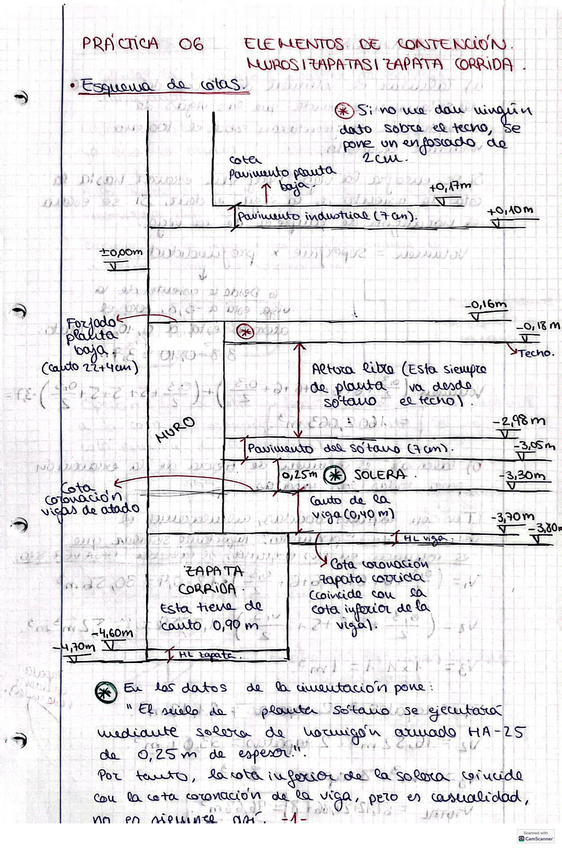 PRÁCTICA 06 ELEMENTOS DE CONTENCIÓN.
MUROS/ZAPATAS/ZAPATA CORRIDA.
• Esquema de cotas.
* Si no me dan ningún
dato sobre el techo, se
pone un enfoscado de
2cm.
cota
Pavimento planta
baja.
+0,17m
Pavimento industrial (7cm).
+0,10m
±0,00m
-0,16m
Forjado
planta
baja
(canto 22+4cm)
*
-0,18m
Techo.
Altura libre (Esta siempre
de planta va desde
sótano el techo).
MURO
-2,98m
Pavimento del sótano (7cm).
-3,05m
0,25m * SOLERA.
-3,30m
Cota
coronación
vigas de atado
Canto de la
viga (0,40m)
-3,70m
-3,80m
HL viga.
ZAPATA
CORRIDA.
Esta tiene de
canto 0,90m
Cota coronación
zapata corrida
(coincide con la
cota inferior de la
viga).
-4,60m
-4,70m
HL zapata.
* En los datos de la cimentación pone:
"El suelo de planta sótano se ejecutará
mediante solera de hormigón armado HA-25
de 0,25m de espesor".
Por tanto, la cota inferior de la solera coincide
con la cota coronación de la viga, pero es casualidad,
no es siempre así. -1-
Scanned with
CamScanner